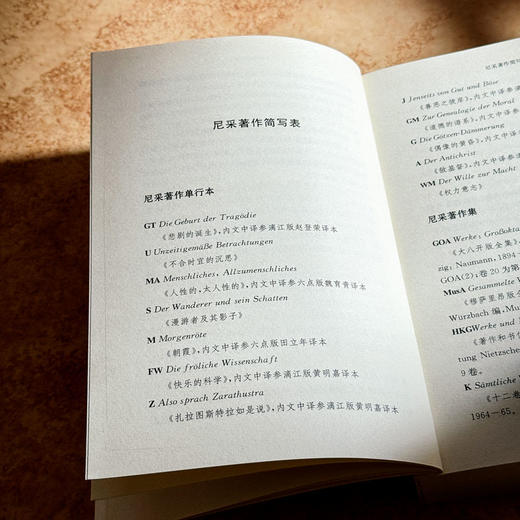 尼采著作简写表
尼采著作单行本
GT Die Geburt der Tragödie
《悲剧的诞生》，内文中译参漓江版赵登荣译本
U Unzeitigemäße Betrachtungen
《不合时宜的沉思》
MA Menschliches, Allzumenschliches
《人性的，太人性的》，内文中译参六点版魏育青译本
S Der Wanderer und sein Schatten
《漫游者及其影子》
M Morgenröte
《朝霞》，内文中译参六点版田立年译本
FW Die fröliche Wissenschaft
《快乐的科学》，内文中译参漓江版黄明嘉译本
Z Also sprach Zarathustra
《扎拉图斯特拉如是说》，内文中译参漓江版黄明嘉译本
尼采著作简写
J Jenseits von Gut und Böse
《善恶之彼岸》，内文中译参
GM Zur Genealogie der Moral
《道德的谱系》，内文中译参
G Die Götzen-Dämmerung
《偶像的黄昏》，内文中译参
A Der Antichrist
《敌基督》，内文中译参
WM Der Wille zur Macht
《权力意志》
尼采著作集
GOA Werke; Großokta
《大八开版全集》，
zig: Naumann, 1894
GOA(2)；卷 20 为第
MusA Gesammelte W
《穆萨里昂版全
Würzbach 编，Mu
HKG Werke und
《著作和书信
tung Nietzsche
9 卷。
K Sämtliche
《十二卷
1964—65。